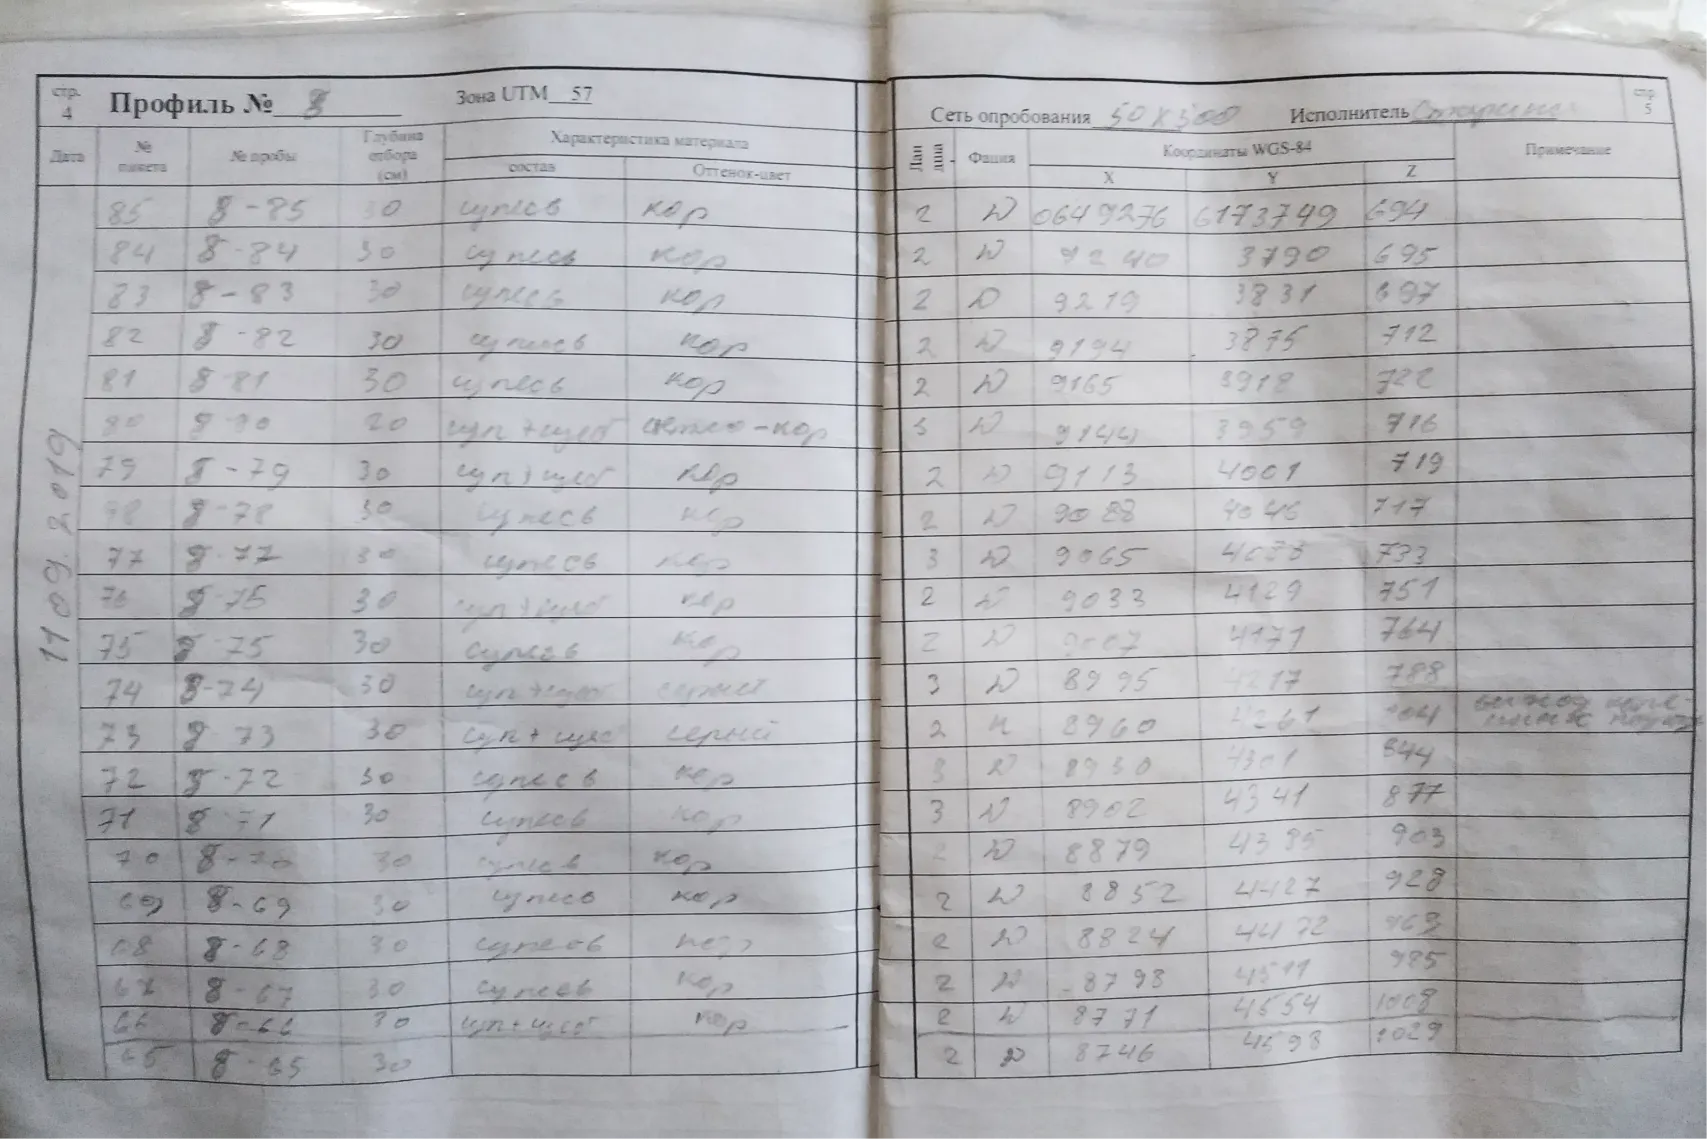 стр. 4 Профиль № 8 Зона UTM 57 Сеть опробования 50 x 500 Исполнитель стр 5
Дата № пакета № пробы Глубина отбора (см) Характеристика материала состав Оттенок-цвет Лан дша Фация Координаты WGS-84 X Y Z Примечание
11 09. 2019
85 8-85 30 супесь кор 2 D 0649276 6173749 694
84 8-84 30 супесь кор 2 D 9240 3790 695
83 8-83 30 супесь кор 2 D 9219 3831 697
82 8-82 30 супесь кор 2 D 9194 3875 712
81 8-81 30 супесь кор 2 D 9165 3912 722
80 8-80 20 суп+щеб светло-кор 3 D 9144 3959 716
79 8-79 30 суп+щеб кор 2 D 9113 4001 719
78 8-78 30 супесь кор 2 D 9088 4046 717
77 8-77 30 супесь кор 3 D 9065 733
76 8-76 30 суп+щеб кор 2 D 9033 4129 751
75 8-75 30 супесь кор 2 D 9007 4171 764
74 8-74 30 суп+щеб серый 3 D 8995 4217 788
73 8-73 30 суп+щеб серый 2 8960 4261 804 выход
72 8-72 30 супесь кор 3 D 8930 4301 844
71 8-71 30 супесь кор 3 D 8902 4341 877
70 8-70 30 супесь кор 2 D 8879 4385 903
69 8-69 30 супесь кор 2 D 8852 4427 928
68 8-68 30 супесь кор 2 D 8824 4472 963
67 8-67 30 супесь кор 2 D 8798 4511 985
66 8-66 30 суп+щеб кор 2 D 8771 4554 1008
65 8-65 30 2 D 8746 4598 1029